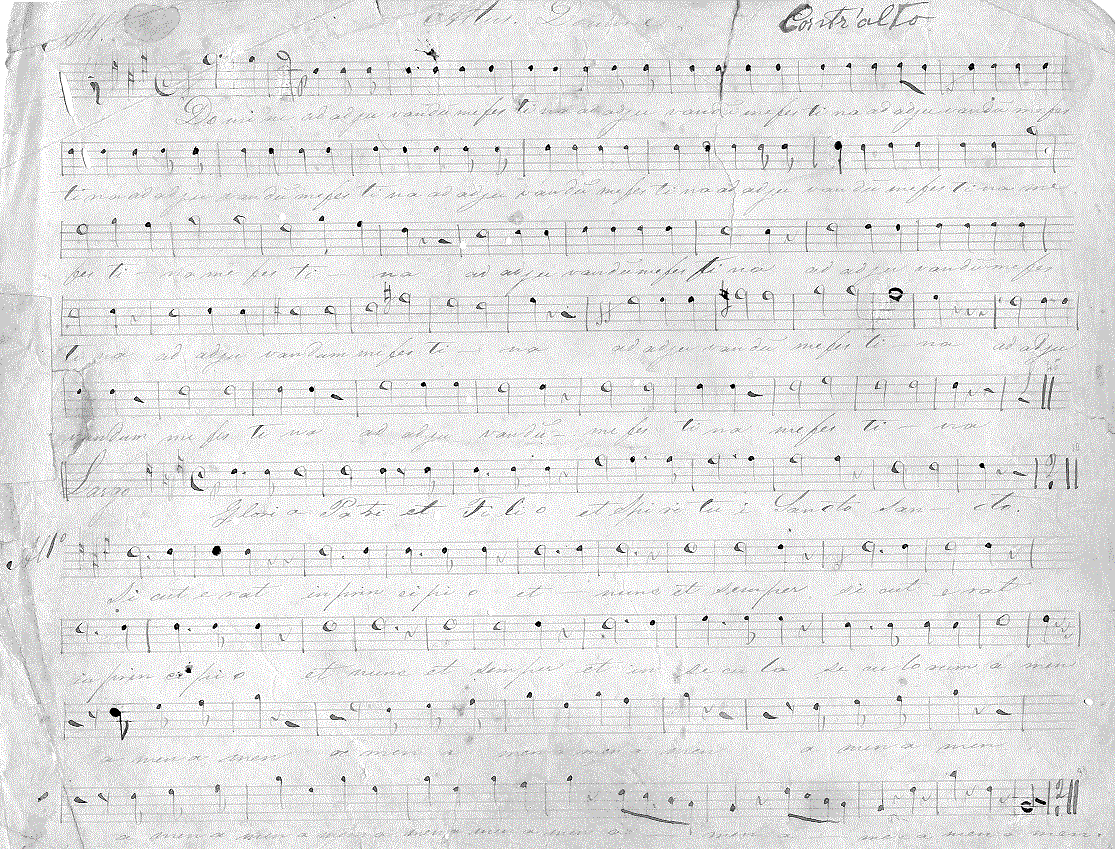 Contr'alto
Domine ad adju vandū me fes ti na ad adju vandū me fes ti na ad adju vandū me fes
ti na ad adju vandū me fes ti na ad adju vandū me fes ti na ad adju vandū me fes ti na me
fes ti na me fes ti na ad adju vandū me fes ti na ad adju vandū me fes
ti na ad adju vandum me fes ti na ad adju vandū me fes ti na ad adju
vandum me fes ti na ad adju vandū me fes ti na me fes ti na
Largo
Glori a Patri et Fi li o et Spi ri tu i Sancto san cto.
All.º
Si cut e rat in prin ci pi o et nunc et semper si cut e rat
in prin ci pi o et nunc et semper et in se cu la se cu lorum a men
a men a men a men a men a men a men a men a men
a men a men a men a men a men a men a men a men a men a men.